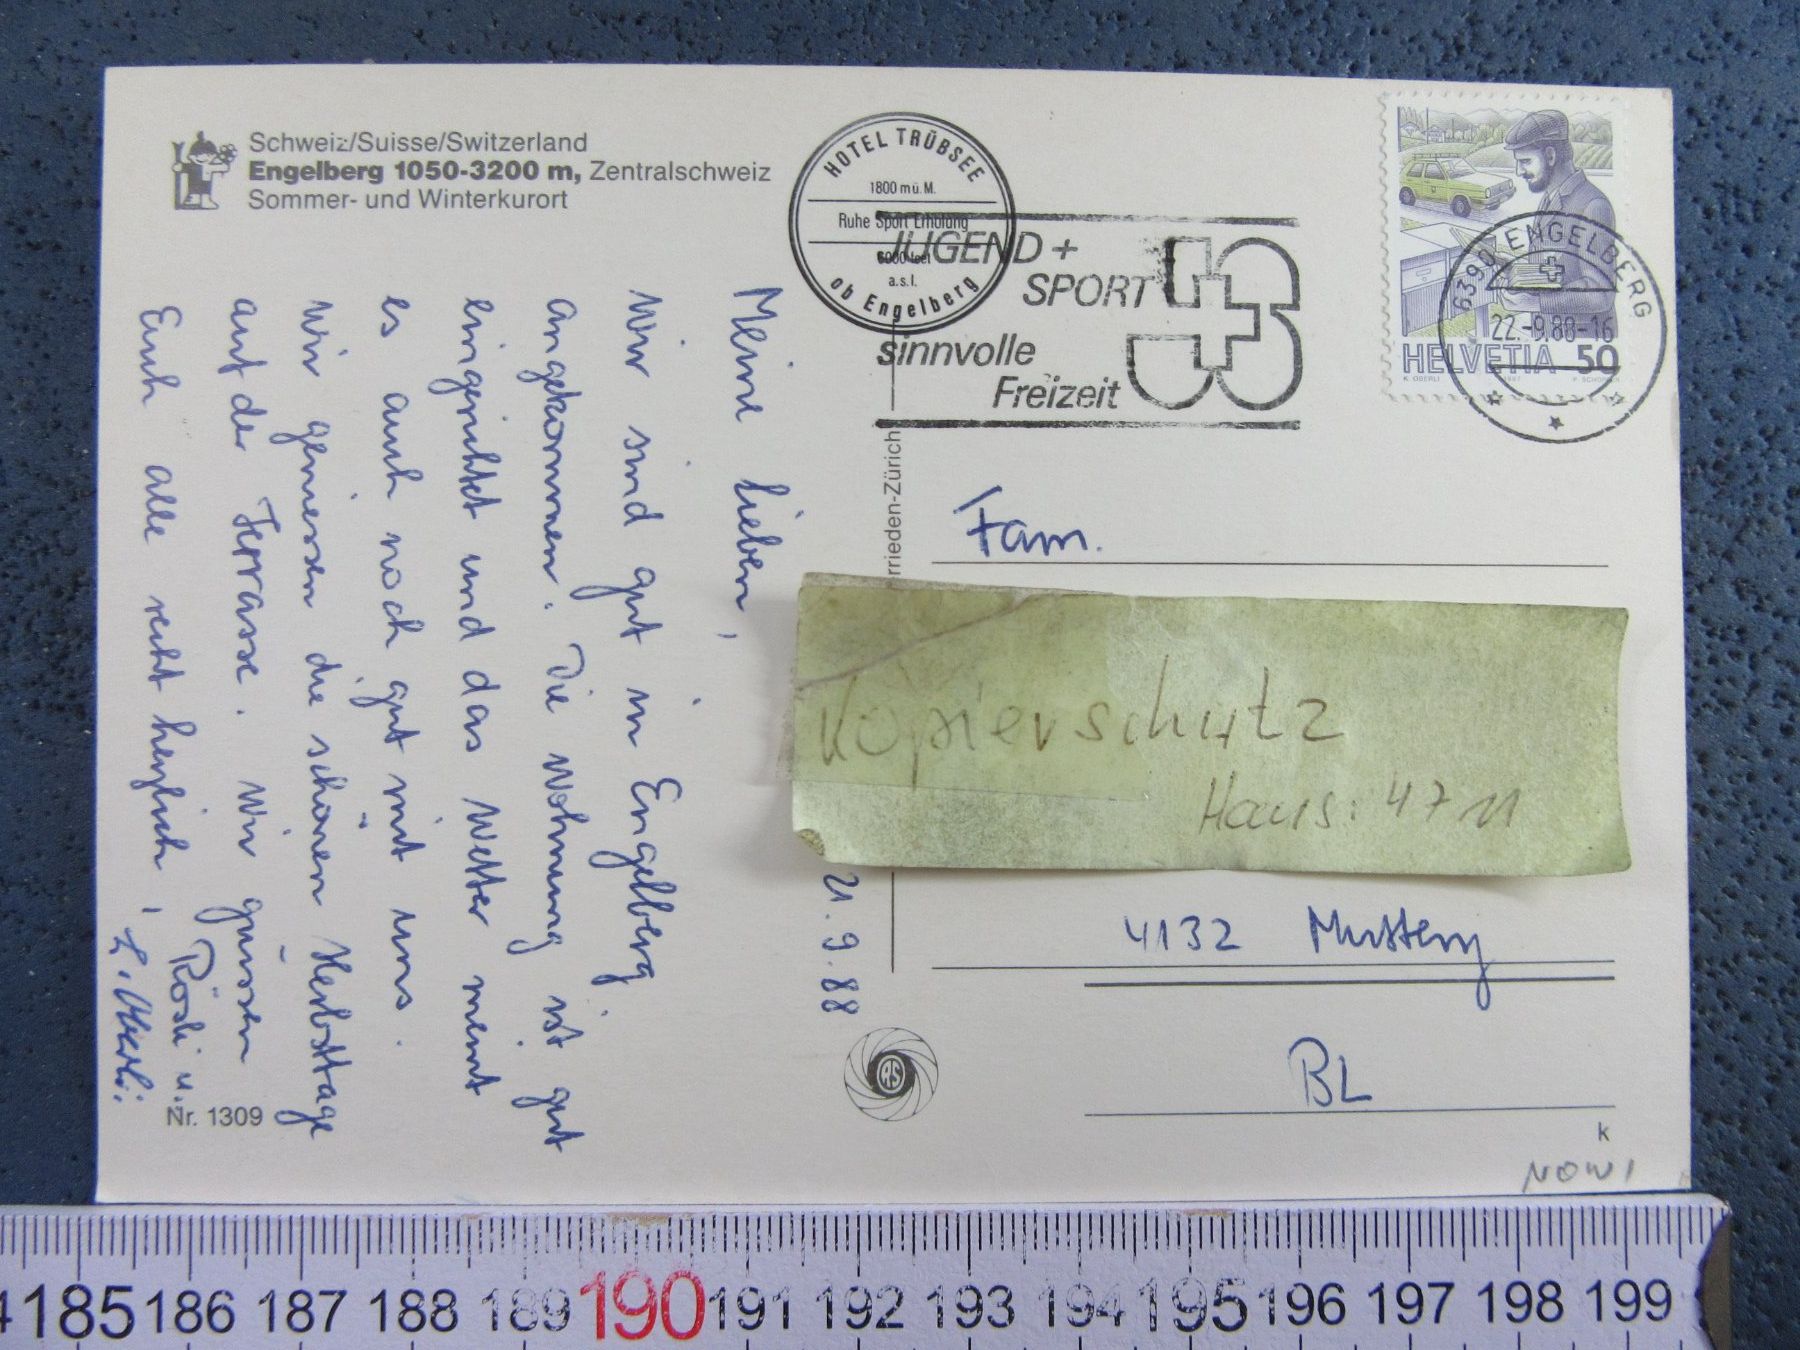 Schweiz/Suisse/Switzerland
Engelberg 1050-3200 m, Zentralschweiz
Sommer- und Winterkurort
HOTEL TRÜBSEE
1800 m ü. M.
Ruhe Sport Erholung
6000 feet
a.s.l.
ob Engelberg
JUGEND +
SPORT
sinnvolle
Freizeit
HELVETIA 50
K. OBERLI 1987 P. SCHOPFER
6390 ENGELBERG
22.-9.88-16
21.9.88
Meine Lieben,
Wir sind gut in Engelberg
angekommen. Die Wohnung ist gut
eingerichtet und das Wetter meint
es auch noch gut mit uns.
Wir geniessen die schönen Herbsttage
auf der Terrasse. Wir grüssen
Euch alle recht herzlich,
Rösli u.
rrieden-Zürich
Fam.
Kopierschutz
Haus: 47 11
4132 Muttenz
BL
AS
Nr. 1309
k
NOWI
185 186 187 188 189 190 191 192 193 194 195 196 197 198 199